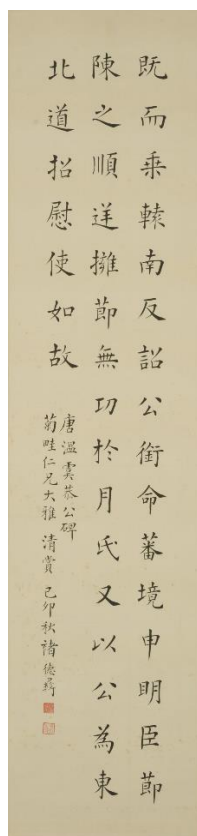 既而乘轅南反詔公銜命蕃境申明臣節
陳之順逆擁節無功於月氏又以公為東
北道招慰使如故
唐溫虞恭公碑
菊畦仁兄大雅清賞 己卯秋褚德彝